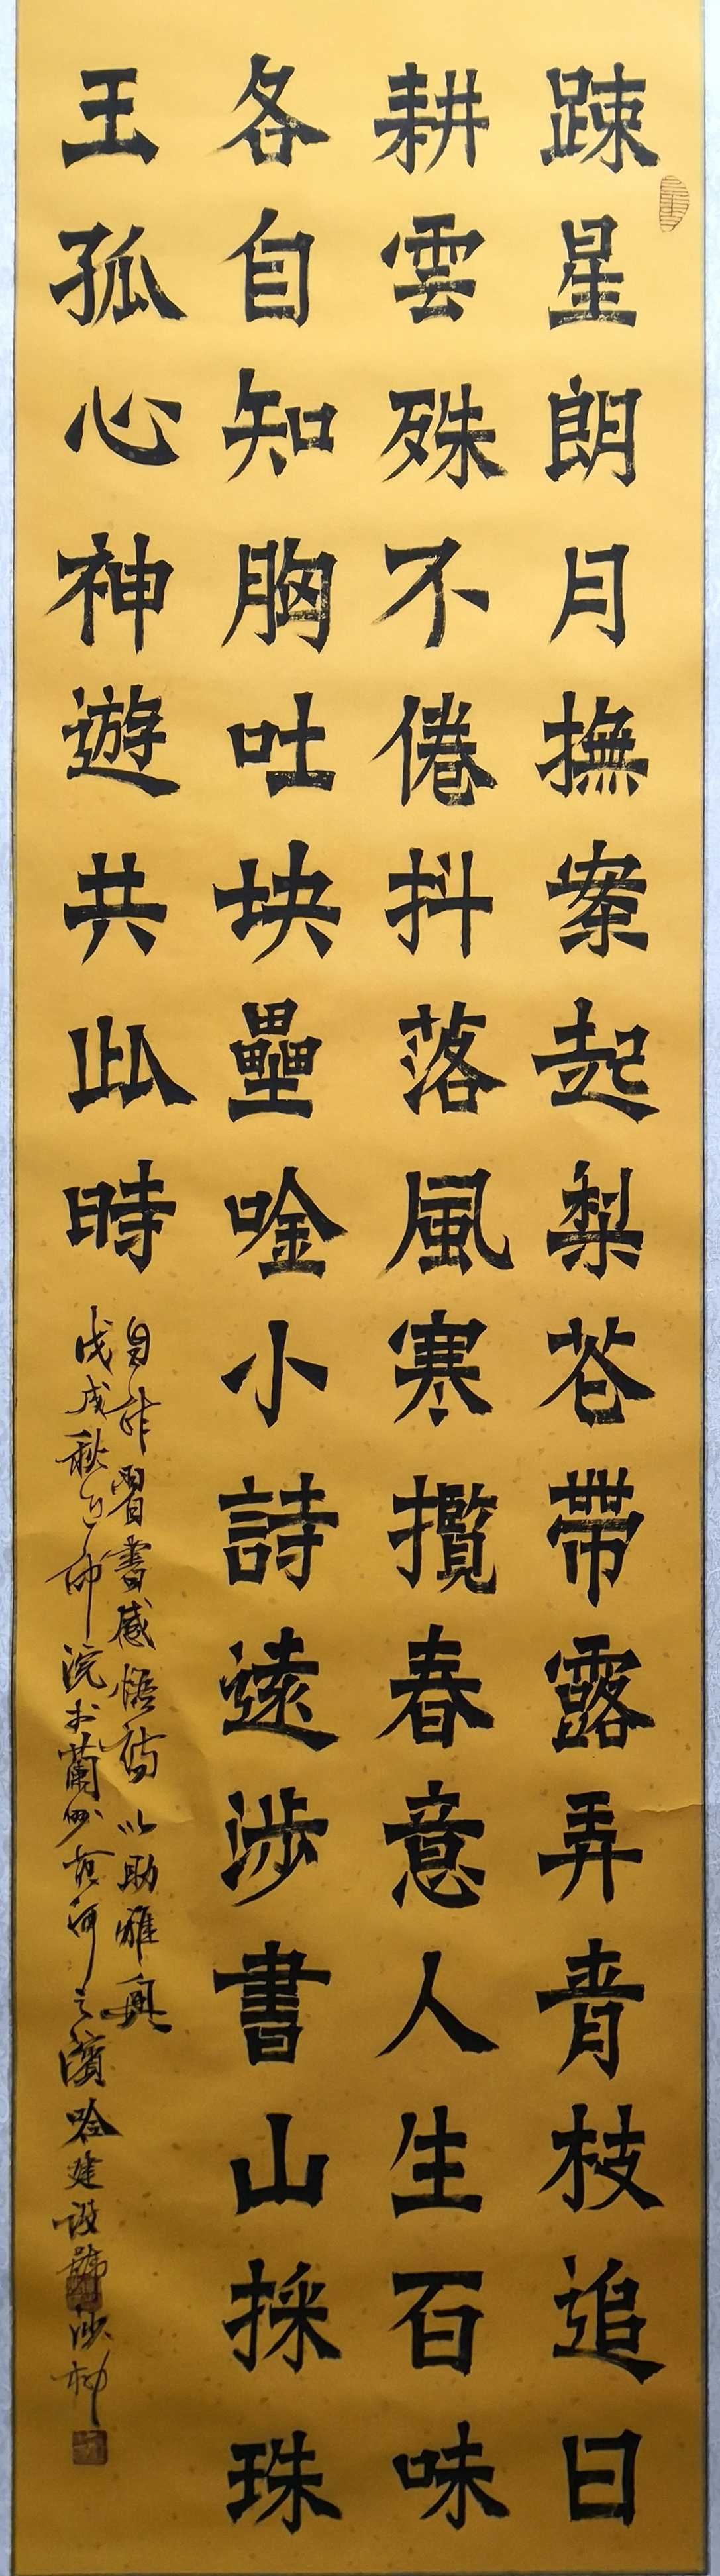 踈星朗月撫案起梨花帶露弄青枝追日
耕雲殊不倦抖落風寒攬春意人生百味
各自知胸吐块壘唫小詩遠涉書山採珠
王孤心神遊共此時
自作習書感悟詩以助雅興
戊戌秋月師院书蘭州黄河之濱唫建設號沙柳